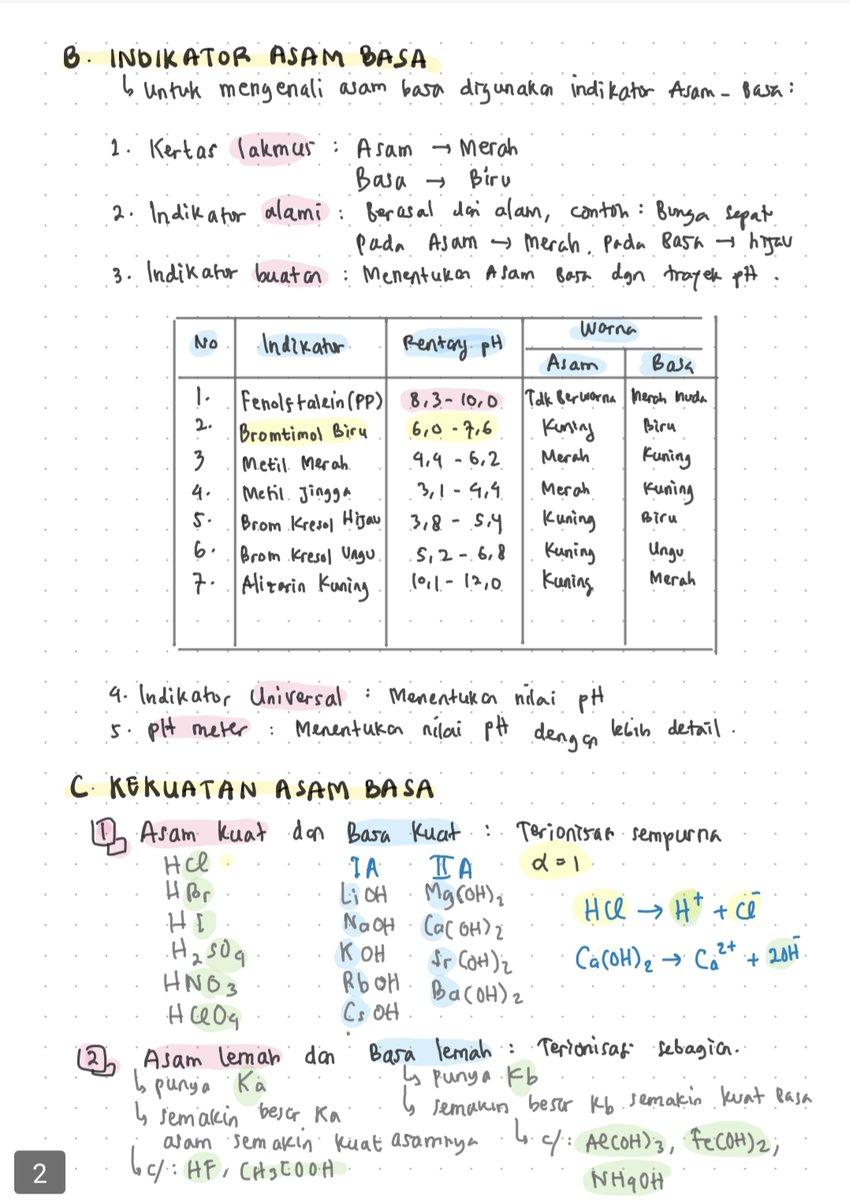 B. INDIKATOR ASAM BASA
↳ Untuk mengenali asam basa digunakan indikator Asam - Basa :
1. Kertas lakmus : Asam → Merah
Basa → Biru
2. Indikator alami : Berasal dari alam, contoh : Bunga sepat
Pada Asam → Merah, Pada Basa → hijau
3. Indikator buatan : Menentukan Asam Basa dgn trayek pH .
No Indikator Rentang pH Warna
Asam Basa
1. Fenolftalein (PP) 8,3 - 10,0 Tdk Berwarna Merah Muda
2. Bromtimol Biru 6,0 - 7,6 Kuning Biru
3 Metil Merah 4,4 - 6,2 Merah Kuning
4. Metil Jingga 3,1 - 4,4 Merah Kuning
5. Brom Kresol Hijau 3,8 - 5,4 Kuning Biru
6. Brom Kresol Ungu 5,2 - 6,8 Kuning Ungu
7. Alizarin Kuning 10,1 - 12,0 Kuning Merah
4. Indikator Universal : Menentukan nilai pH
5. pH meter : Menentukan nilai pH dengan lebih detail .
C. KEKUATAN ASAM BASA
1 Asam kuat dan Basa Kuat : Terionisasi sempurna
HCl IA IIA α = 1
HBr LiOH Mg(OH)₂
HI NaOH Ca(OH)₂ HCl → H⁺ + Cl⁻
H₂SO₄ KOH Sr(OH)₂ Ca(OH)₂ → Ca²⁺ + 2OH⁻
HNO₃ RbOH Ba(OH)₂
HClO₄ CsOH
2 Asam lemah dan Basa lemah : Terionisasi sebagian.
↳ punya Ka ↳ punya Kb
↳ semakin besar Ka ↳ semakin besar Kb semakin kuat Basa
asam semakin kuat asamnya ↳ c/: Al(OH)₃, Fe(OH)₂,
↳ c/: HF, CH₃COOH NH₄OH
2